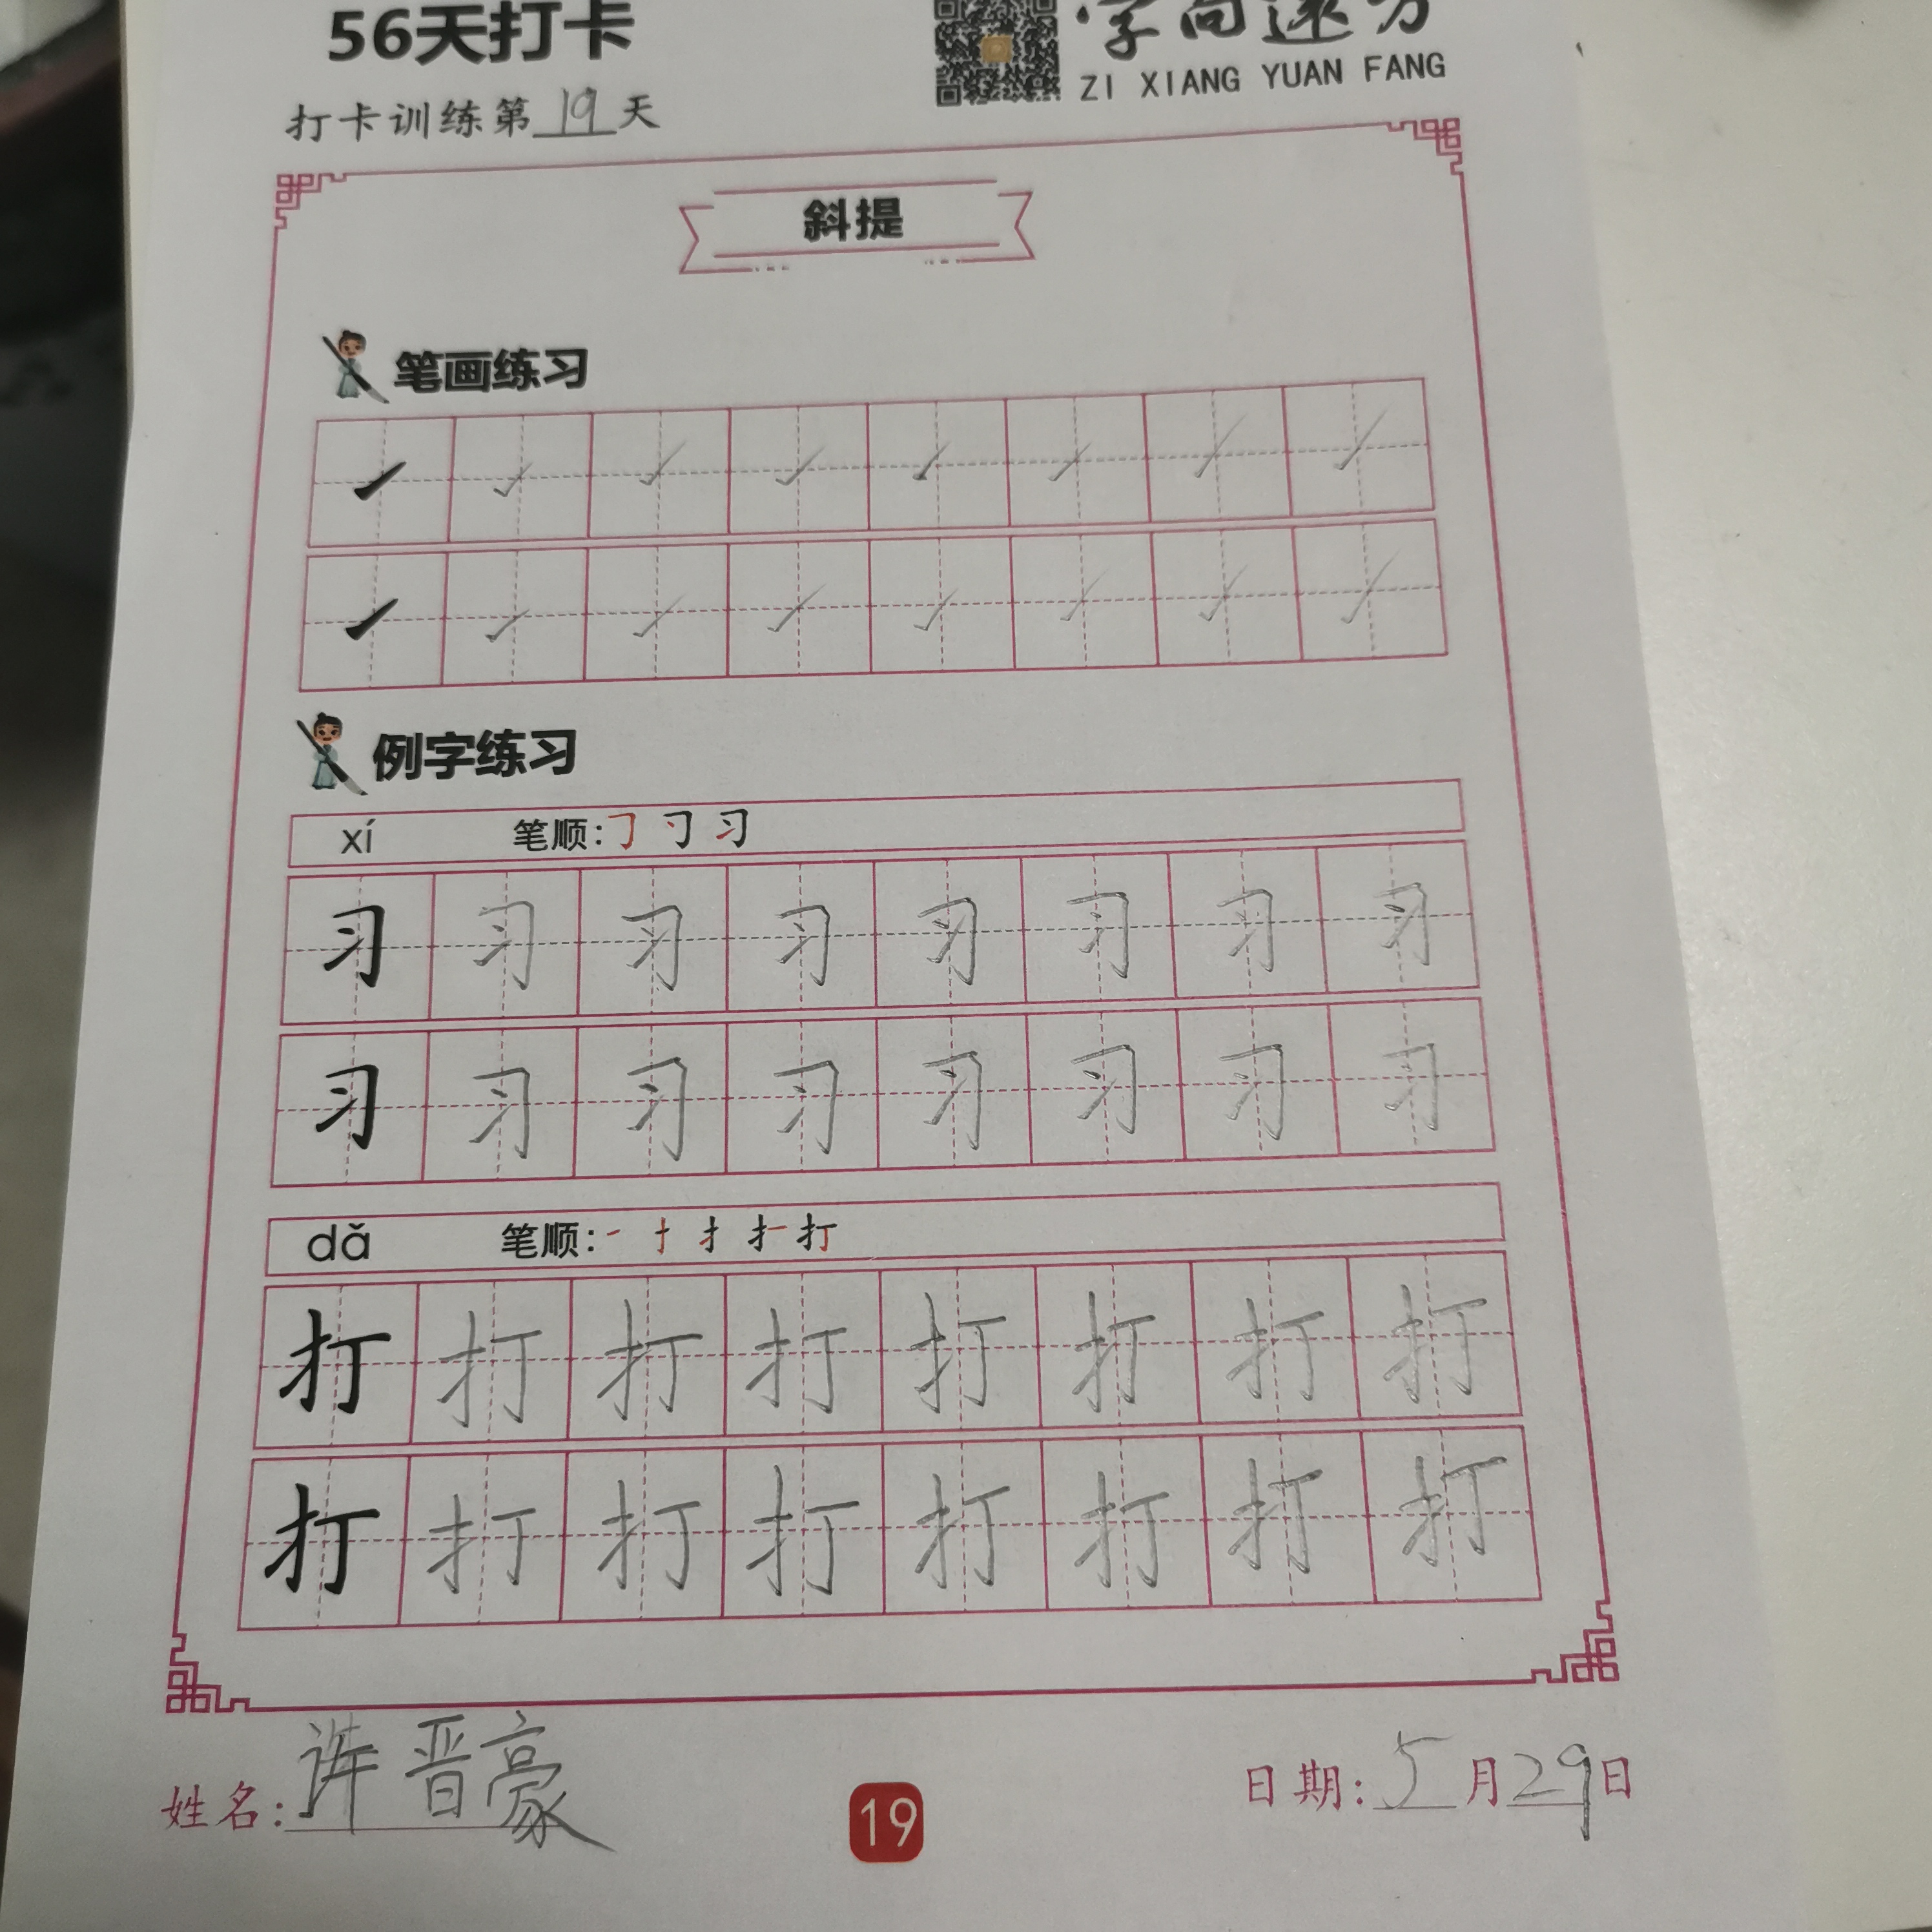 56天打卡
字向远方
ZI XIANG YUAN FANG
打卡训练第19天
斜提
笔画练习
例字练习
xí 笔顺:㇆ 刁 习
习 习 习 习 习 习 习 习
习 习 习 习 习 习 习 习
dǎ 笔顺:㇀ 扌 扌 扌 打
打 打 打 打 打 打 打 打
打 打 打 打 打 打 打 打
姓名:许晋豪
19
日期:5月29日